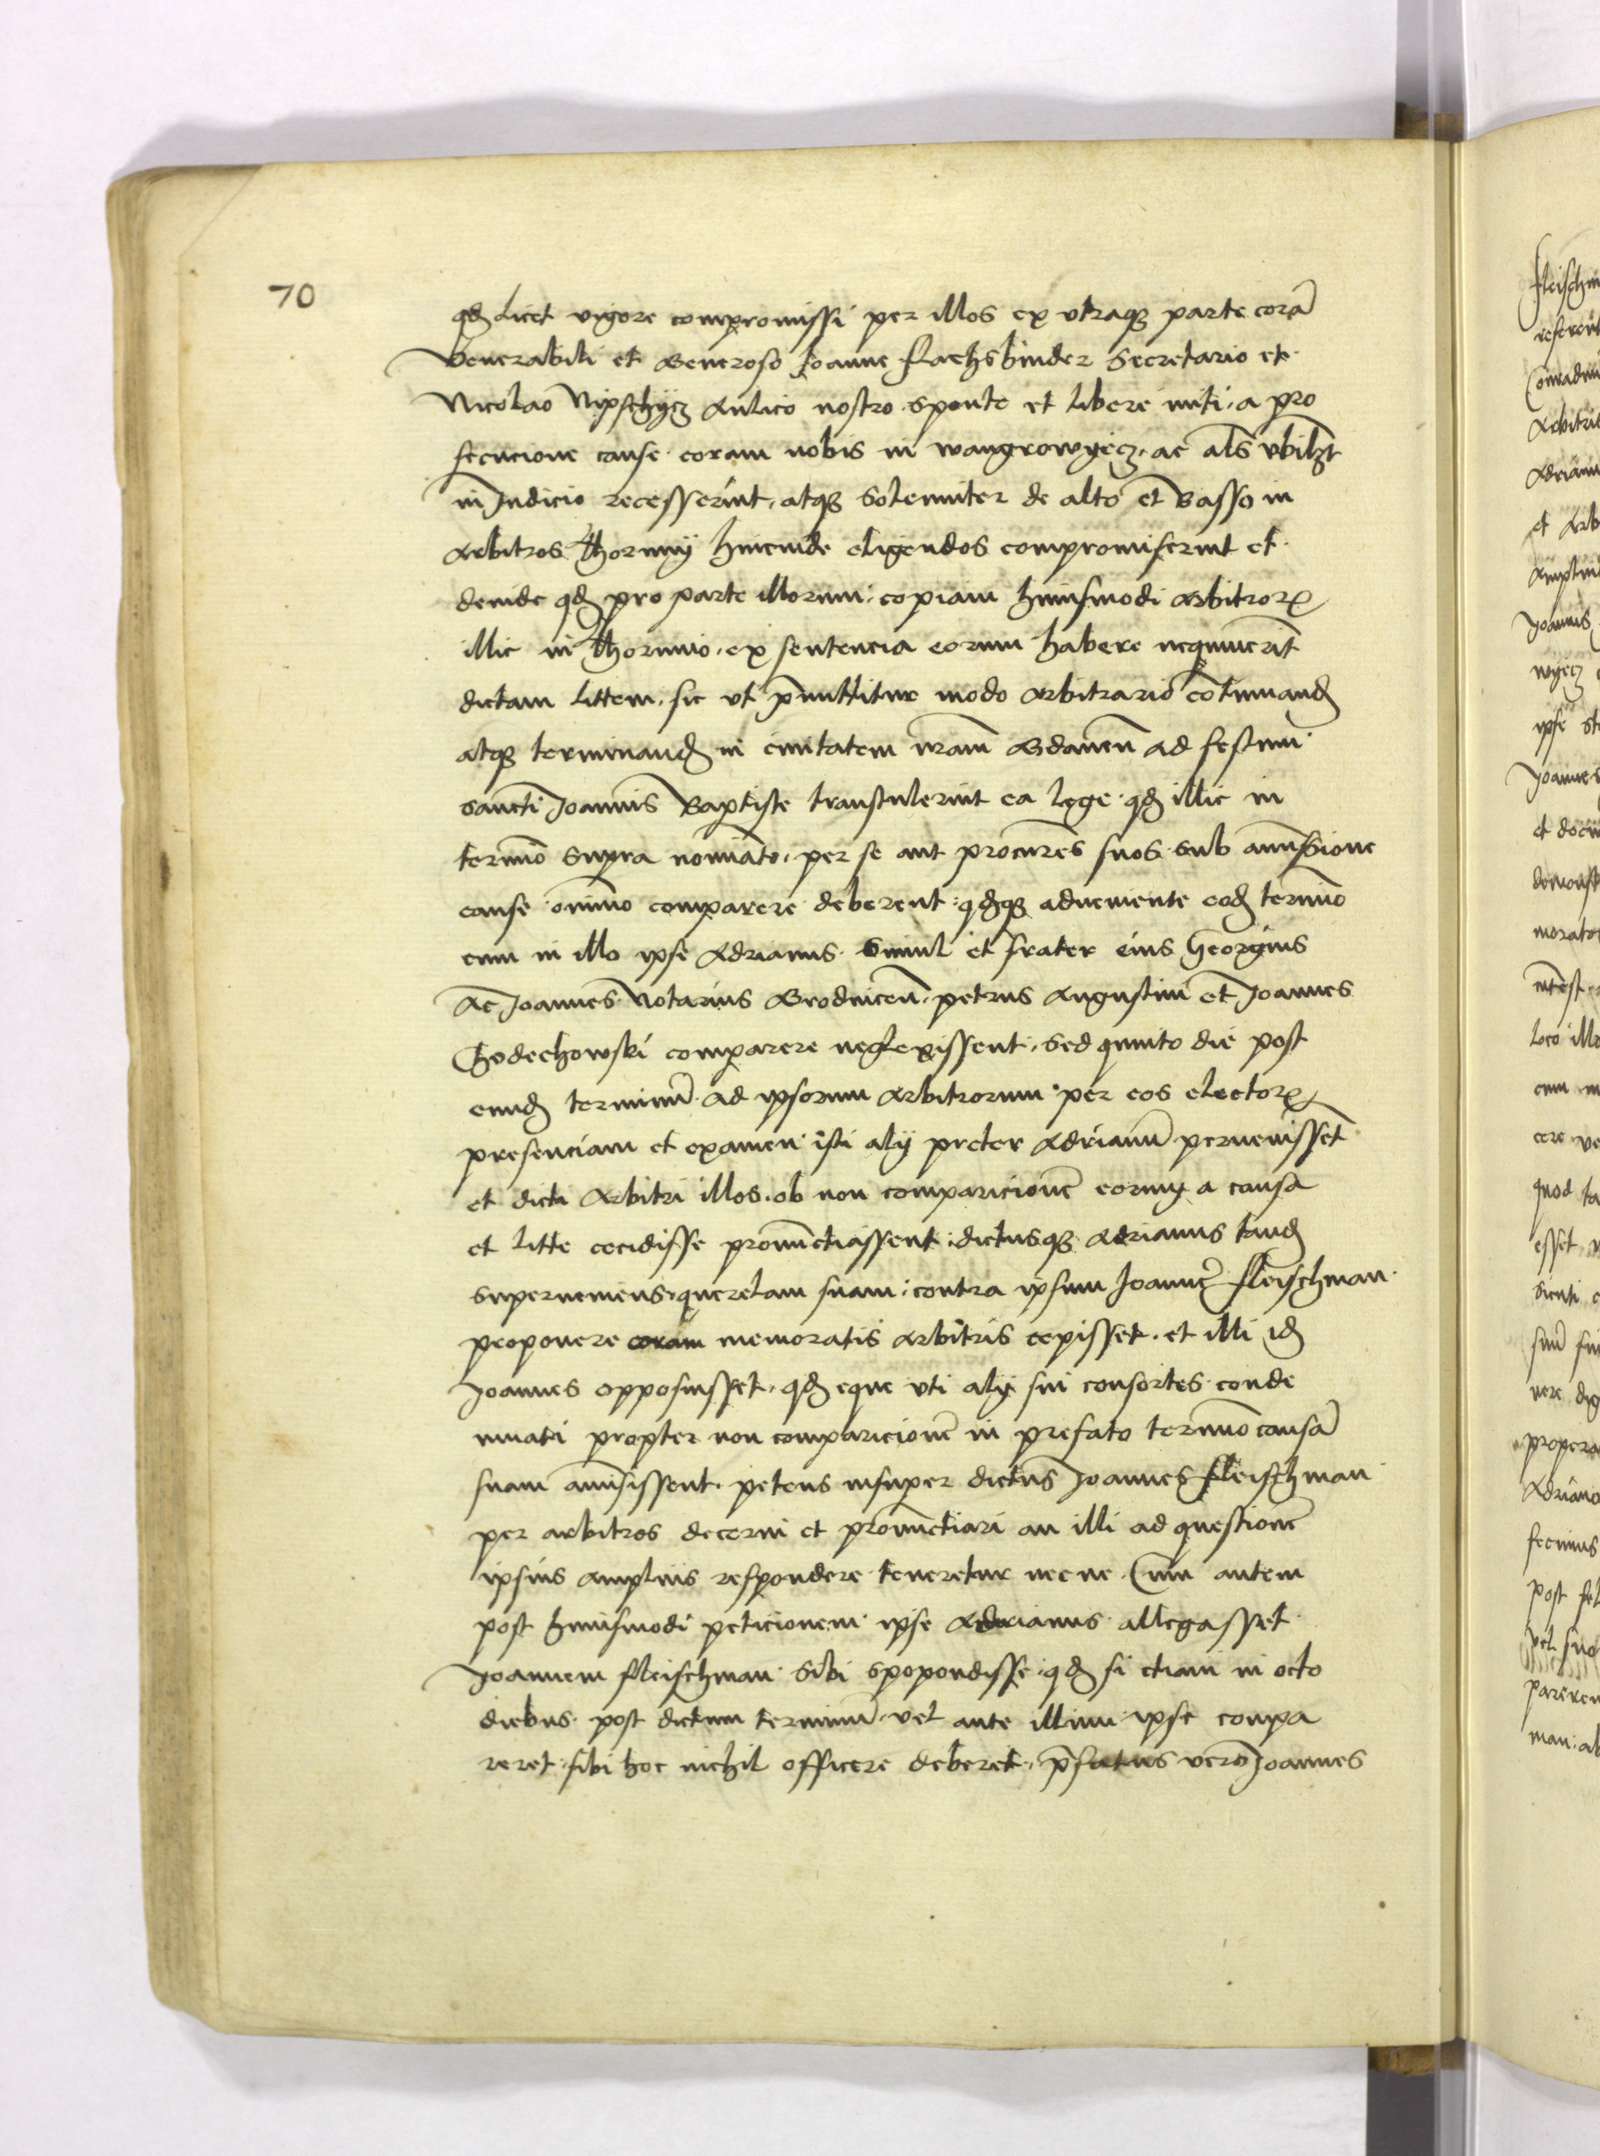 70
qd licet vigore compromissi per illos ex vtraque parte corā
Venerabili et Generoso Joanne Flachsbinder Secretario et
Nicolao Nipschycz Aulico nostro sponte et libere initi, a pro
secucione cause coram nobis in wangrowyecz, ac als vbilʒt
in Judicio recesserint, atque Solenniter de alto et Basso in
Arbitros Thorunij hincinde eligendos compromiserint et
deinde qd pro parte illorum copiam huiusmodi Arbitror
illic in Thorunio ex sentencia eorum habere nequiuerīt
dictam littem, sic vt p̄mittitur modo Arbitrario cōtinuand
atque terminand in ciuitatem nrām Gdaneñ ad festum
sancti Joannis Baptiste transtulerint ea lege qd illic in
termīo supra noīato, per se aut procurēs suos sub amissione
cause omnīo comparere deberent, qdque adueniente eod termīo
cum in illo ipse Adrianus Simul et frater eius Georgius
Ac Joannes Notarius Brodniceñ, petrus Augustini et Joannes
Chodechowski comparere neglexissent, sed quinto die post
eund terminū ad ipsorum Arbitrorum per eos elector
presenciam et examen isti alij preter Adrianū peruenissēt
et dicti Arbitri illos, ob non comparicionē eorum a causa
et litte cecidisse pronūctiassent, dictusque Adrianus tand
superueniens querelam suam contra ipsum Joannē Fleischman
proponere coram memoratis Arbitris cepisset, et illi id
Joannes opposuisset, qd eque vti alij sui consortes conde
mnati propter non comparicionē in prefato termīo causā
suam amisissent, petens insuper dictus Joannes Fleischman
per arbitros decerni et pronūctiari an illi ad questionē
ipsius amplius respondere teneretur nec ne. Cum autem
post huiusmodi peticionem ipse Adrianus allegasset
Joannem Fleischman sibi spopondisse, qd si etiam in octo
diebus post dictum terminū vel ante illum ipse compa
reret, sibi hoc nichil officere deberet, p̄fatus vero Joannes